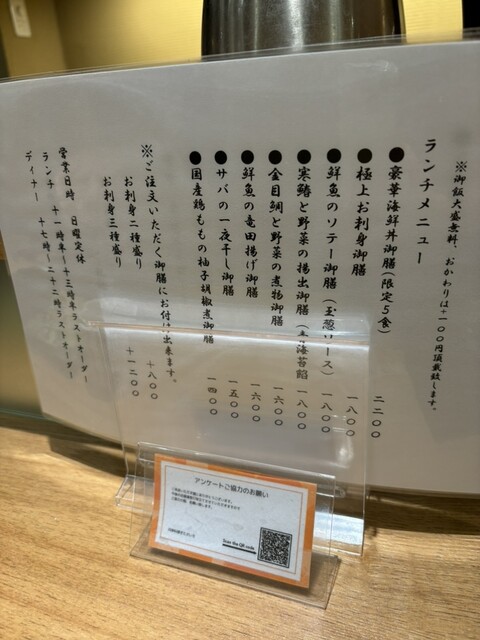 ※御飯大盛無料、おかわりは+一〇〇円頂戴致します。
ランチメニュー
●豪華海鮮丼御膳(限定5食) 二二〇〇
●極上お刺身御膳 一八〇〇
●鮮魚のソテー御膳(玉葱ソース) 一八〇〇
●寒鰆と野菜の揚出御膳(青海苔餡) 一八〇〇
●金目鯛と野菜の煮物御膳 一六〇〇
●鮮魚の竜田揚げ御膳 一六〇〇
●サバの一夜干し御膳 一五〇〇
●国産鶏ももの柚子胡椒煮御膳 一四〇〇
※ご注文いただく御膳にお付け出来ます。
お刺身二種盛り +八〇〇
お刺身三種盛り +一二〇〇
営業日時 日曜定休
ランチ 十一時半〜十三時半ラストオーダー
ディナー 十七時〜二十二時ラストオーダー
アンケートご協力のお願い
Scan the QR code